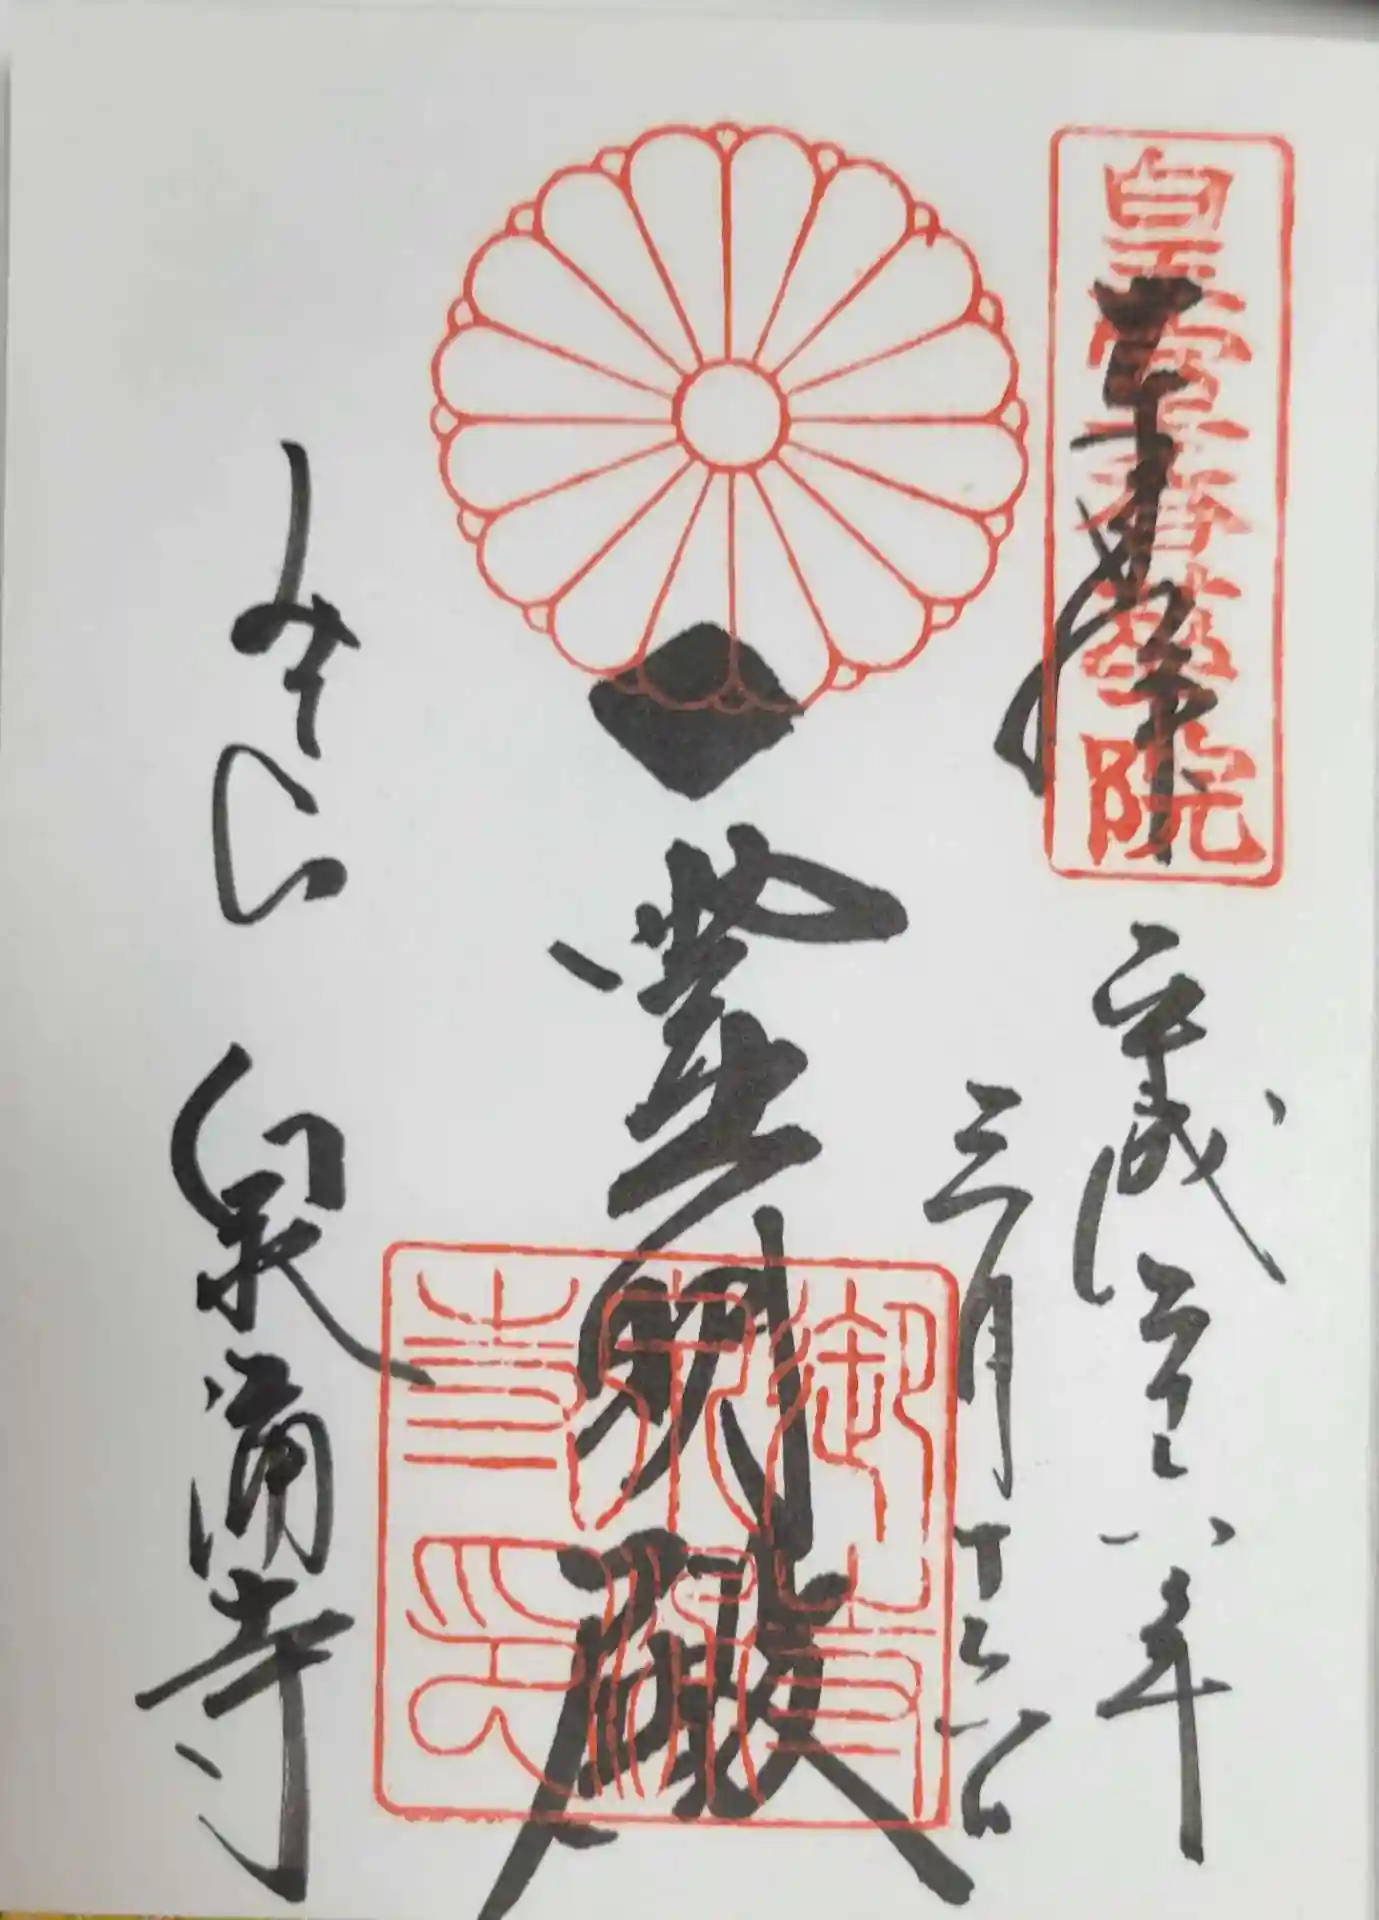 皇室香華院
奉拝
平成二十八年
三月
霊明殿
御寺
泉涌
寺印
みてら 泉涌寺